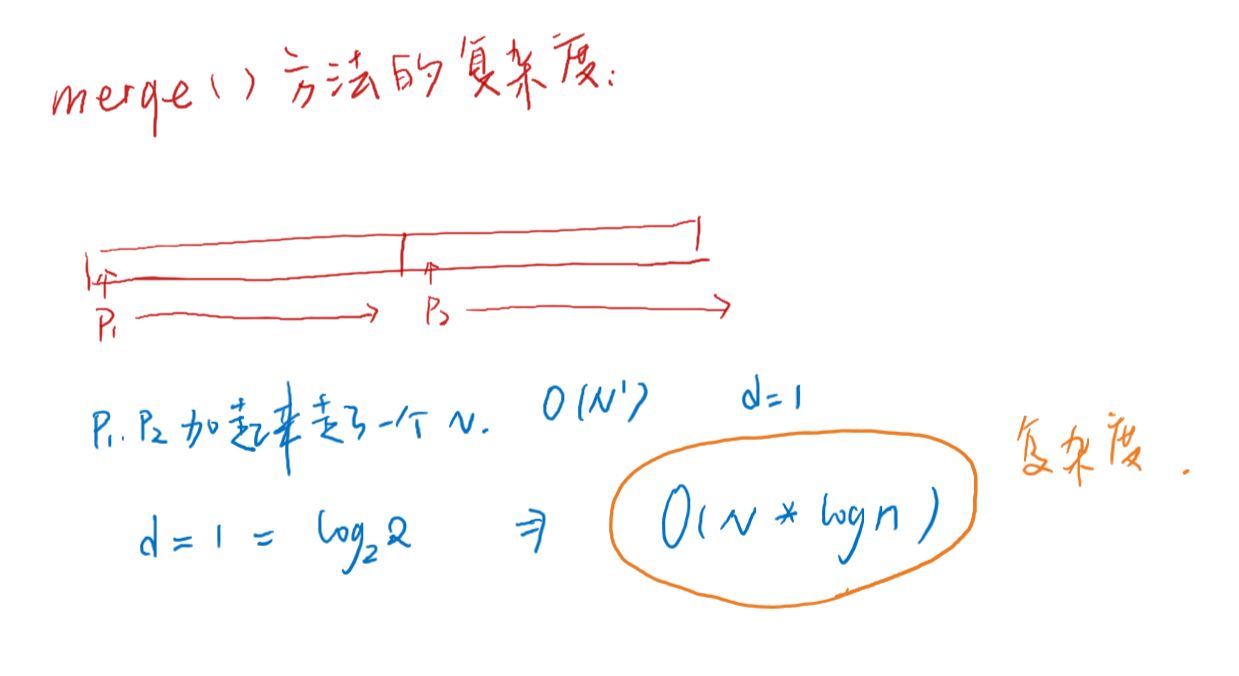 merge()方法的复杂度:
P₁ P₂
P₁.P₂加起来走了一个N. O(N¹) d=1
复杂度.
d=1=log₂2 ⇒ O(N*logn)